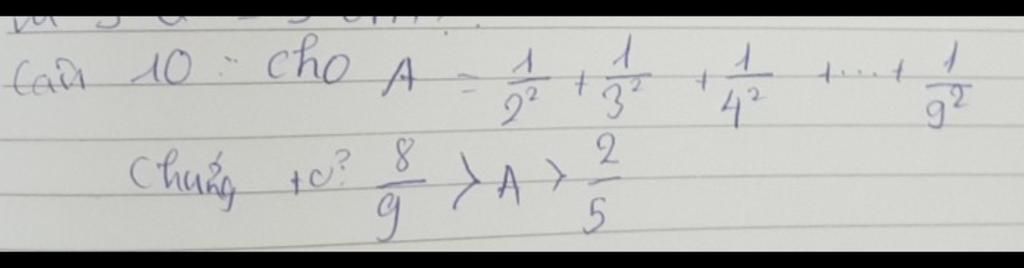 Câu 10 : cho A = 1/2² + 1/3² + 1/4² + ... + 1/9²
Chứng tỏ 8/9 > A > 2/5